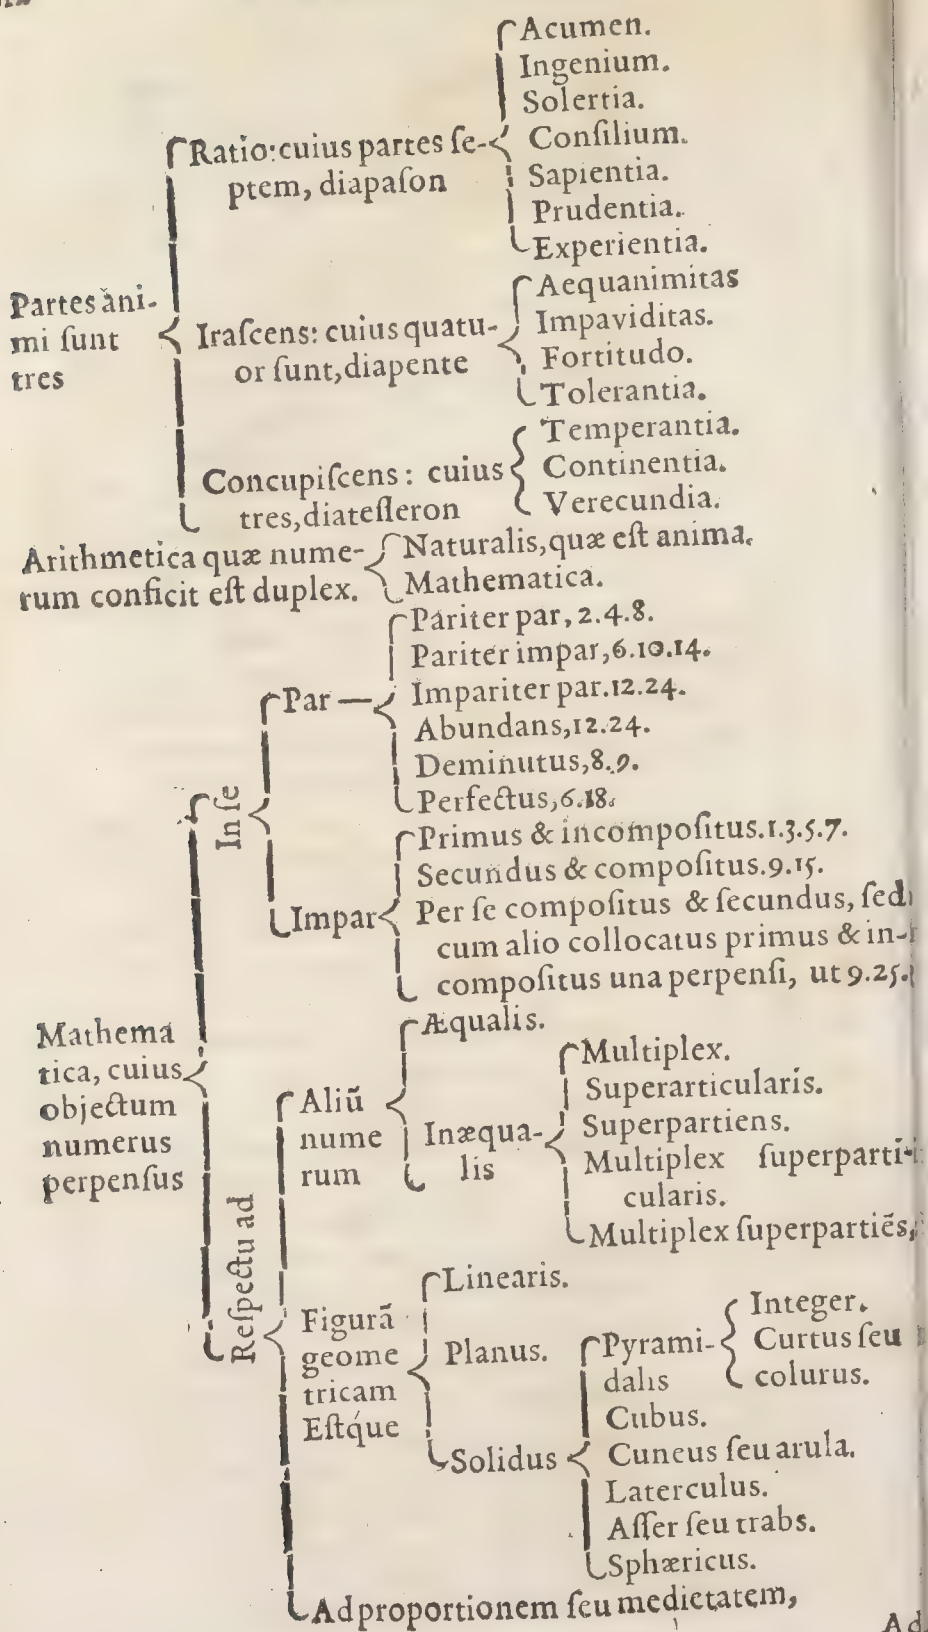 Acumen.
Ingenium.
Solertia.
Ratio: cuius partes ſe-
ptem, diapaſon
Conſilium.
Sapientia.
Prudentia.
Experientia.
Partes ani-
mi ſunt
tres
Iraſcens: cuius quatu-
or ſunt, diapente
Aequanimitas
Impaviditas.
Fortitudo.
Tolerantia.
Concupiſcens: cuius
tres, diateſſeron
Temperantia.
Continentia.
Verecundia.
Arithmetica quæ nume-
rum conficit eſt duplex.
Naturalis, quæ eſt anima.
Mathematica.
Mathema
tica, cuius
objectum
numerus
perpenſus
In ſe
Par
Pariter par, 2.4.8.
Pariter impar, 6.10.14.
Impariter par. 12.24.
Abundans, 12.24.
Deminutus, 8.9.
Perfectus, 6.18.
Impar
Primus & incompoſitus. 1.3.5.7.
Secundus & compoſitus. 9.15.
Per ſe compoſitus & ſecundus, ſed
cum alio collocatus primus & in-
compoſitus una perpenſi, ut 9.25.
Reſpectu ad
Aliũ
nume
rum
Æqualis.
Inæqua-
lis
Multiplex.
Superarticularis.
Superpartiens.
Multiplex ſuperparti-
cularis.
Multiplex ſuperpartiẽs,
Figurã
geome
tricam
Eſtq́ue
Linearis.
Planus.
Solidus
Pyrami-
dalis
Integer.
Curtus ſeu
colurus.
Cubus.
Cuneus ſeu arula.
Laterculus.
Aſſer ſeu trabs.
Sphæricus.
Ad proportionem ſeu medietatem,
Ad